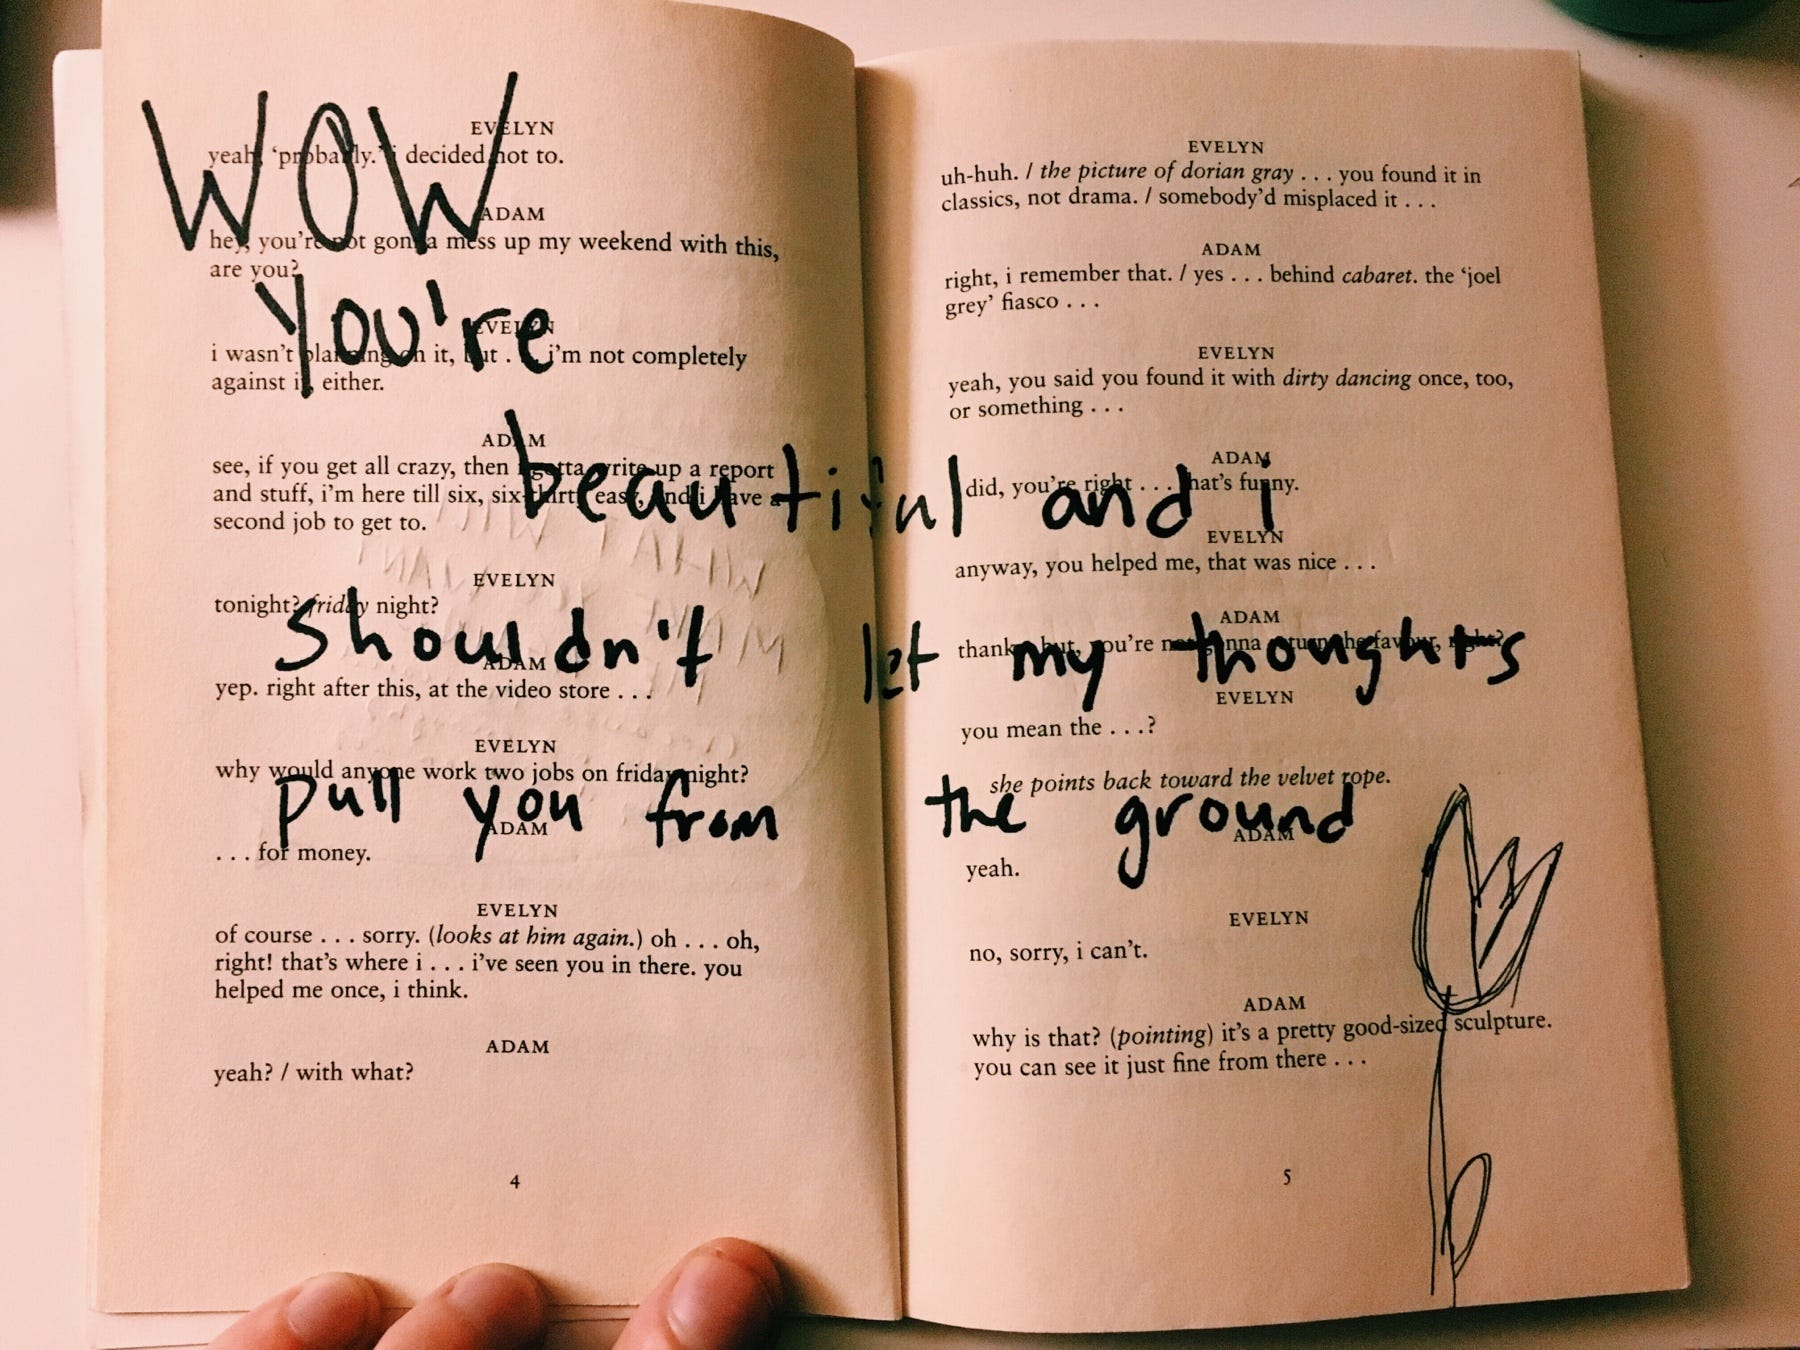 WOW
you're
beautiful and i
shouldn't let my thoughts
pull you from the ground
EVELYN
yeah, ‘probably.’ i decided not to.
ADAM
hey, you're not gonna mess up my weekend with this,
are you?
EVELYN
i wasn't planning on it, but . . . i'm not completely
against it, either.
ADAM
see, if you get all crazy, then i gotta write up a report
and stuff, i'm here till six, six-thirty easy, and i have a
second job to get to.
EVELYN
tonight? friday night?
ADAM
yep. right after this, at the video store . . .
EVELYN
why would anyone work two jobs on friday night?
ADAM
. . . for money.
EVELYN
of course . . . sorry. (looks at him again.) oh . . . oh,
right! that's where i . . . i've seen you in there. you
helped me once, i think.
ADAM
yeah? / with what?
4
EVELYN
uh-huh. / the picture of dorian gray . . . you found it in
classics, not drama. / somebody'd misplaced it . . .
ADAM
right, i remember that. / yes . . . behind cabaret. the ‘joel
grey’ fiasco . . .
EVELYN
yeah, you said you found it with dirty dancing once, too,
or something . . .
ADAM
did, you're right . . . that's funny.
EVELYN
anyway, you helped me, that was nice . . .
ADAM
thanks, but, you're not gonna return the favour, right?
EVELYN
you mean the . . .?
she points back toward the velvet rope.
ADAM
yeah.
EVELYN
no, sorry, i can't.
ADAM
why is that? (pointing) it's a pretty good-sized sculpture.
you can see it just fine from there . . .
5